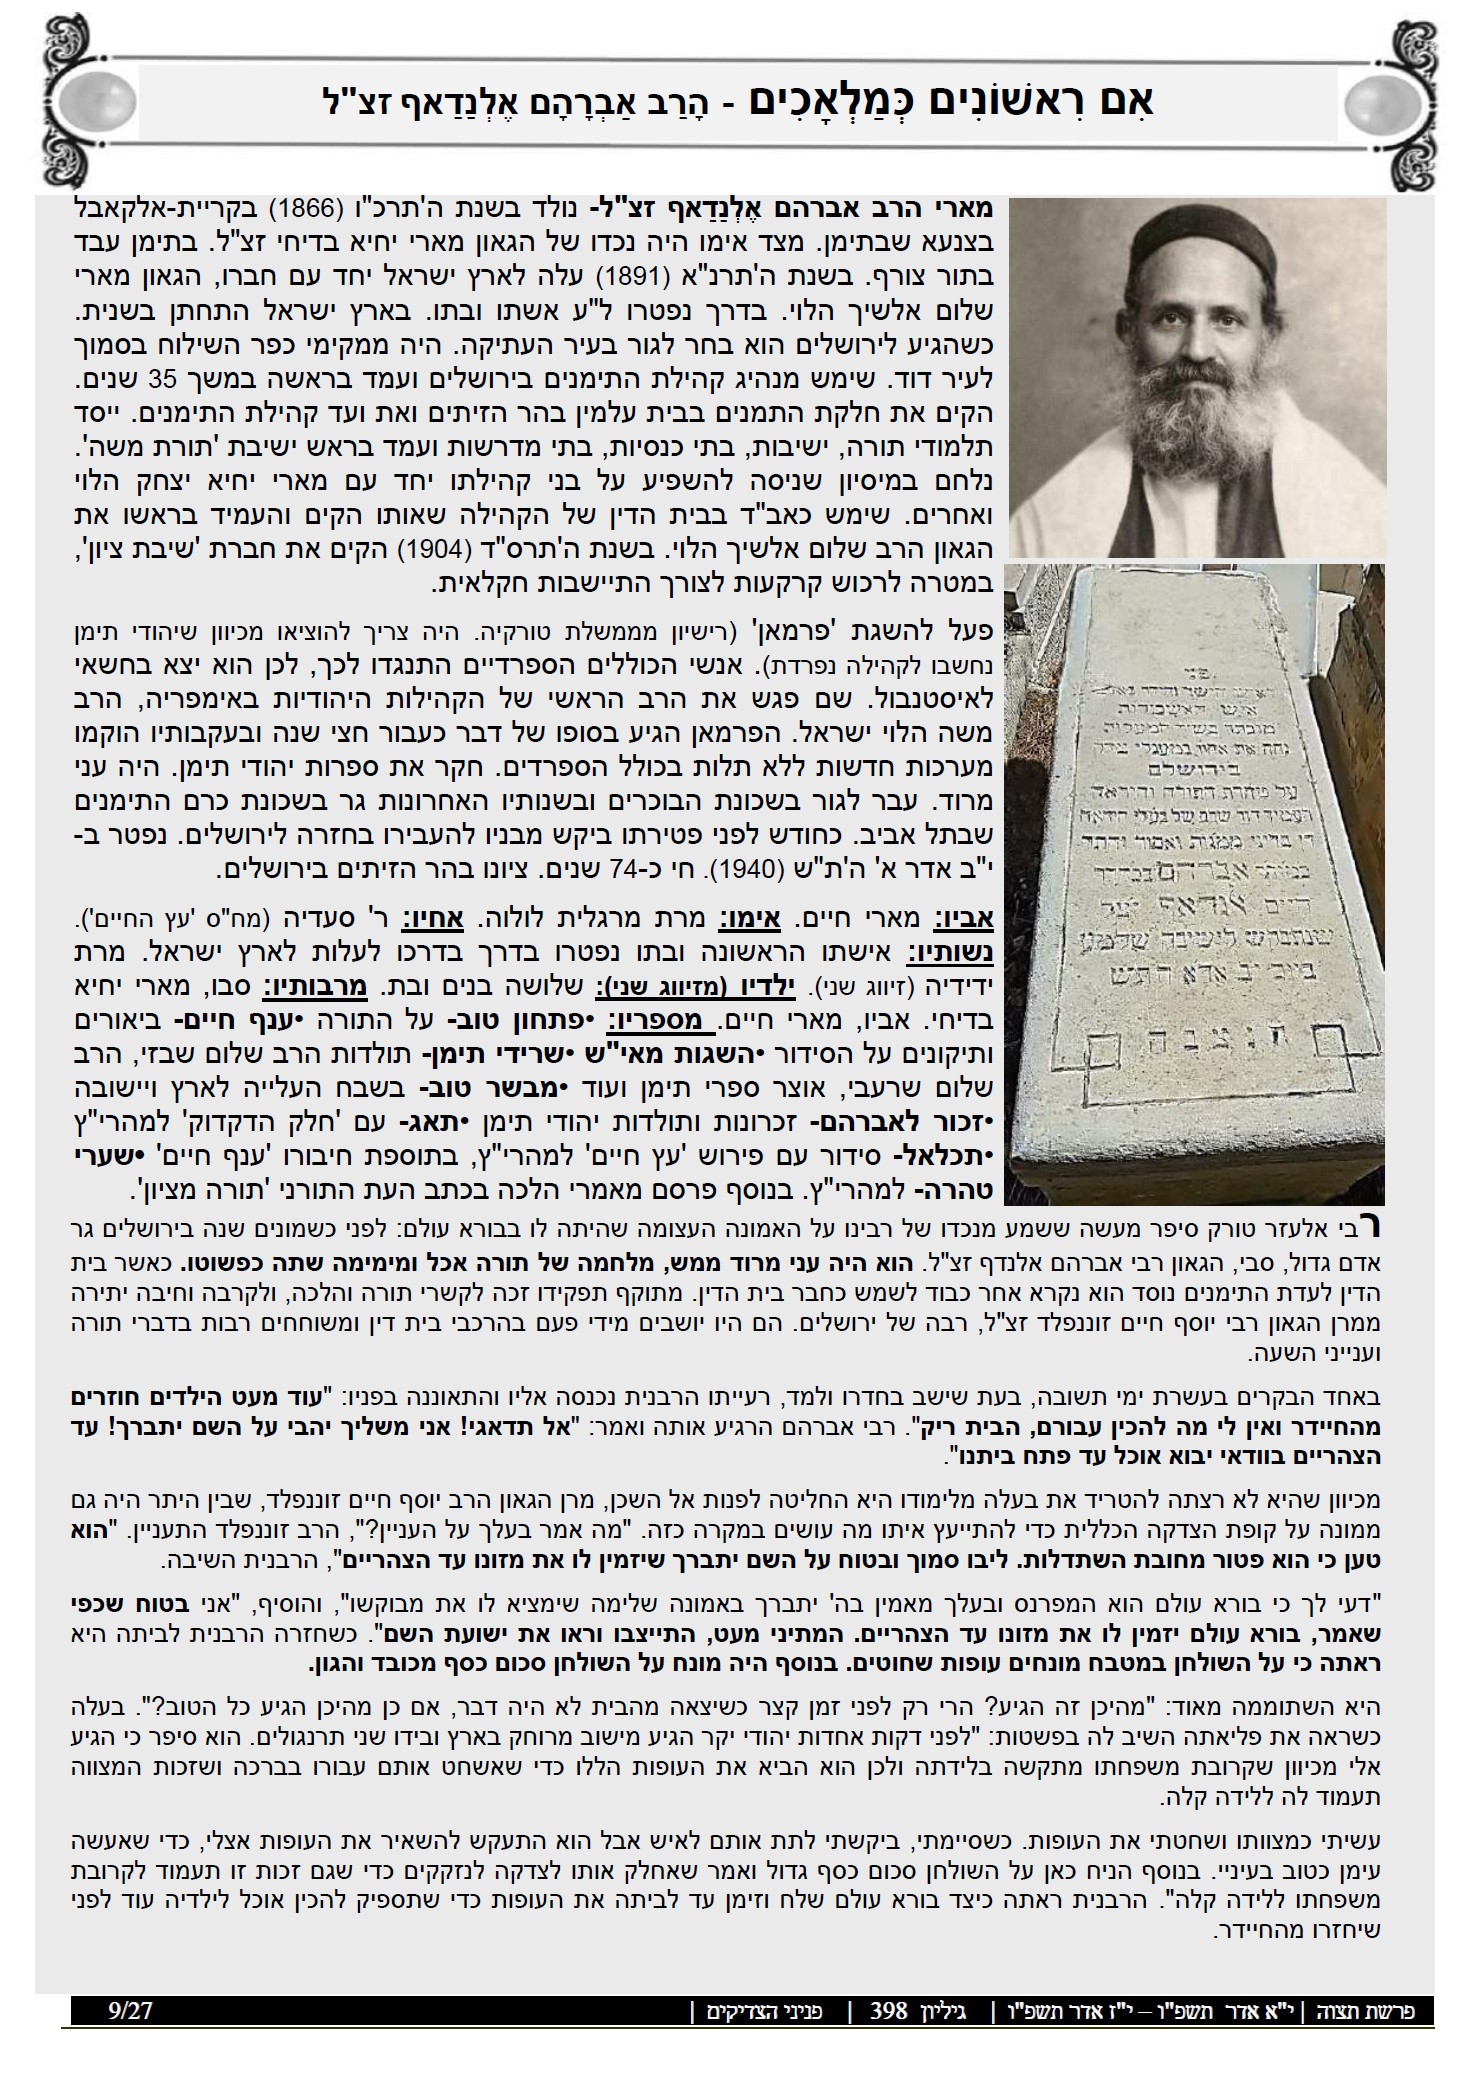 אִם רִאשׁוֹנִים כְּמַלְאָכִים - הָרַב אַבְרָהָם אֶלְנַדַאף זצ"ל
מארי הרב אברהם אֶלְנַדַאף זצ"ל- נולד בשנת ה'תרכ"ו (1866) בקריית-אלקאבל
בצנעא שבתימן. מצד אימו היה נכדו של הגאון מארי יחיא בדיחי זצ"ל. בתימן עבד
בתור צורף. בשנת ה'תרנ"א (1891) עלה לארץ ישראל יחד עם חברו, הגאון מארי
שלום אלשיך הלוי. בדרך נפטרו ל"ע אשתו ובתו. בארץ ישראל התחתן בשנית.
כשהגיע לירושלים הוא בחר לגור בעיר העתיקה. היה ממקימי כפר השילוח בסמוך
לעיר דוד. שימש מנהיג קהילת התימנים בירושלים ועמד בראשה במשך 35 שנים.
הקים את חלקת התמנים בבית עלמין בהר הזיתים ואת ועד קהילת התימנים. ייסד
תלמודי תורה, ישיבות, בתי כנסיות, בתי מדרשות ועמד בראש ישיבת 'תורת משה'.
נלחם במיסיון שניסה להשפיע על בני קהילתו יחד עם מארי יחיא יצחק הלוי
ואחרים. שימש כאב"ד בבית הדין של הקהילה שאותו הקים והעמיד בראשו את
הגאון הרב שלום אלשיך הלוי. בשנת ה'תרס"ד (1904) הקים את חברת 'שיבת ציון',
במטרה לרכוש קרקעות לצורך התיישבות חקלאית.
פעל להשגת 'פרמאן' (רישיון מממשלת טורקיה. היה צריך להוציאו מכיוון שיהודי תימן
נחשבו לקהילה נפרדת). אנשי הכוללים הספרדיים התנגדו לכך, לכן הוא יצא בחשאי
לאיסטנבול. שם פגש את הרב הראשי של הקהילות היהודיות באימפריה, הרב
משה הלוי ישראל. הפרמאן הגיע בסופו של דבר כעבור חצי שנה ובעקבותיו הוקמו
מערכות חדשות ללא תלות בכולל הספרדים. חקר את ספרות יהודי תימן. היה עני
מרוד. עבר לגור בשכונת הבוכרים ובשנותיו האחרונות גר בשכונת כרם התימנים
שבתל אביב. כחודש לפני פטירתו ביקש מבניו להעבירו בחזרה לירושלים. נפטר ב-
י"ב אדר א' ה'ת"ש (1940). חי כ-74 שנים. ציונו בהר הזיתים בירושלים.
אביו: מארי חיים. אימו: מרת מרגלית לולוה. אחיו: ר' סעדיה (מח"ס 'עץ החיים').
נשותיו: אישתו הראשונה ובתו נפטרו בדרך בדרכו לעלות לארץ ישראל. מרת
ידידיה (זיווג שני). ילדיו (מזיווג שני): שלושה בנים ובת. מרבותיו: סבו, מארי יחיא
בדיחי. אביו, מארי חיים. מספריו: •פתחון טוב- על התורה •ענף חיים- ביאורים
ותיקונים על הסידור •השגות מאי"ש •שרידי תימן- תולדות הרב שלום שבזי, הרב
שלום שרעבי, אוצר ספרי תימן ועוד •מבשר טוב- בשבח העלייה לארץ ויישובה
•זכור לאברהם- זכרונות ותולדות יהודי תימן •תאג- עם 'חלק הדקדוק' למהרי"ץ
•תכלאל- סידור עם פירוש 'עץ חיים' למהרי"ץ, בתוספת חיבורו 'ענף חיים' •שערי
טהרה- למהרי"ץ. בנוסף פרסם מאמרי הלכה בכתב העת התורני 'תורה מציון'.
איש האשכולות
נחה את אחיו במעגלי צדק
בירושלים
על טהרת התורה והיראה
אברהם
חיים אלנדאף
ביום יב אדא התש
ת נ צ ב ה
רבי אלעזר טורק סיפר מעשה ששמע מנכדו של רבינו על האמונה העצומה שהיתה לו בבורא עולם: לפני כשמונים שנה בירושלים גר
אדם גדול, סבי, הגאון רבי אברהם אלנדף זצ"ל. הוא היה עני מרוד ממש, מלחמה של תורה אכל ומימימה שתה כפשוטו. כאשר בית
הדין לעדת התימנים נוסד הוא נקרא אחר כבוד לשמש כחבר בית הדין. מתוקף תפקידו זכה לקשרי תורה והלכה, ולקרבה וחיבה יתירה
ממרן הגאון רבי יוסף חיים זוננפלד זצ"ל, רבה של ירושלים. הם היו יושבים מידי פעם בהרכבי בית דין ומשוחחים רבות בדברי תורה
וענייני השעה.
באחד הבקרים בעשרת ימי תשובה, בעת שישב בחדרו ולמד, רעייתו הרבנית נכנסה אליו והתאוננה בפניו: "עוד מעט הילדים חוזרים
מהחיידר ואין לי מה להכין עבורם, הבית ריק". רבי אברהם הרגיע אותה ואמר: "אל תדאגי! אני משליך יהבי על השם יתברך! עד
הצהריים בוודאי יבוא אוכל עד פתח ביתנו".
מכיוון שהיא לא רצתה להטריד את בעלה מלימודו היא החליטה לפנות אל השכן, מרן הגאון הרב יוסף חיים זוננפלד, שבין היתר היה גם
ממונה על קופת הצדקה הכללית כדי להתייעץ איתו מה עושים במקרה כזה. "מה אמר בעלך על העניין?", הרב זוננפלד התעניין. "הוא
טען כי הוא פטור מחובת השתדלות. ליבו סמוך ובטוח על השם יתברך שיזמין לו את מזונו עד הצהריים", הרבנית השיבה.
"דעי לך כי בורא עולם הוא המפרנס ובעלך מאמין בה' יתברך באמונה שלימה שימציא לו את מבוקשו", והוסיף, "אני בטוח שכפי
שאמר, בורא עולם יזמין לו את מזונו עד הצהריים. המתיני מעט, התייצבו וראו את ישועת השם". כשחזרה הרבנית לביתה היא
ראתה כי על השולחן במטבח מונחים עופות שחוטים. בנוסף היה מונח על השולחן סכום כסף מכובד והגון.
היא השתוממה מאוד: "מהיכן זה הגיע? הרי רק לפני זמן קצר כשיצאה מהבית לא היה דבר, אם כן מהיכן הגיע כל הטוב?". בעלה
כשראה את פליאתה השיב לה בפשטות: "לפני דקות אחדות יהודי יקר הגיע מישוב מרוחק בארץ ובידו שני תרנגולים. הוא סיפר כי הגיע
אלי מכיוון שקרובת משפחתו מתקשה בלידתה ולכן הוא הביא את העופות הללו כדי שאשחט אותם עבורו בברכה ושזכות המצווה
תעמוד לה ללידה קלה.
עשיתי כמצוותו ושחטתי את העופות. כשסיימתי, ביקשתי לתת אותם לאיש אבל הוא התעקש להשאיר את העופות אצלי, כדי שאעשה
עימן כטוב בעיניי. בנוסף הניח כאן על השולחן סכום כסף גדול ואמר שאחלק אותו לצדקה לנזקקים כדי שגם זכות זו תעמוד לקרובת
משפחתו ללידה קלה". הרבנית ראתה כיצד בורא עולם שלח וזימן עד לביתה את העופות כדי שתספיק להכין אוכל לילדיה עוד לפני
שיחזרו מהחיידר.
פרשת תצוה | י"א אדר תשפ"ו – י"ז אדר תשפ"ו | גיליון 398 | פניני הצדיקים | 9/27